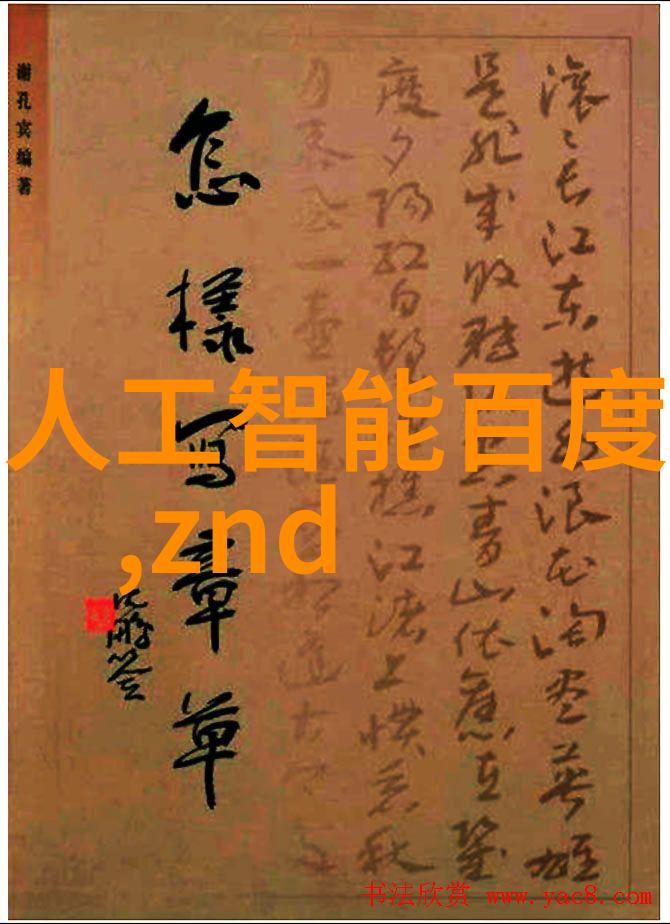 谢孔宾编著
怎样写章草
人工智能百度
,znd
滚滚长江东逝水浪花淘尽英雄
是非成败转头空青山依旧在几
度夕阳红白发渔樵江渚上惯看秋
月春风一壶浊酒喜相逢古今多
书法欣赏 www.yac8.com